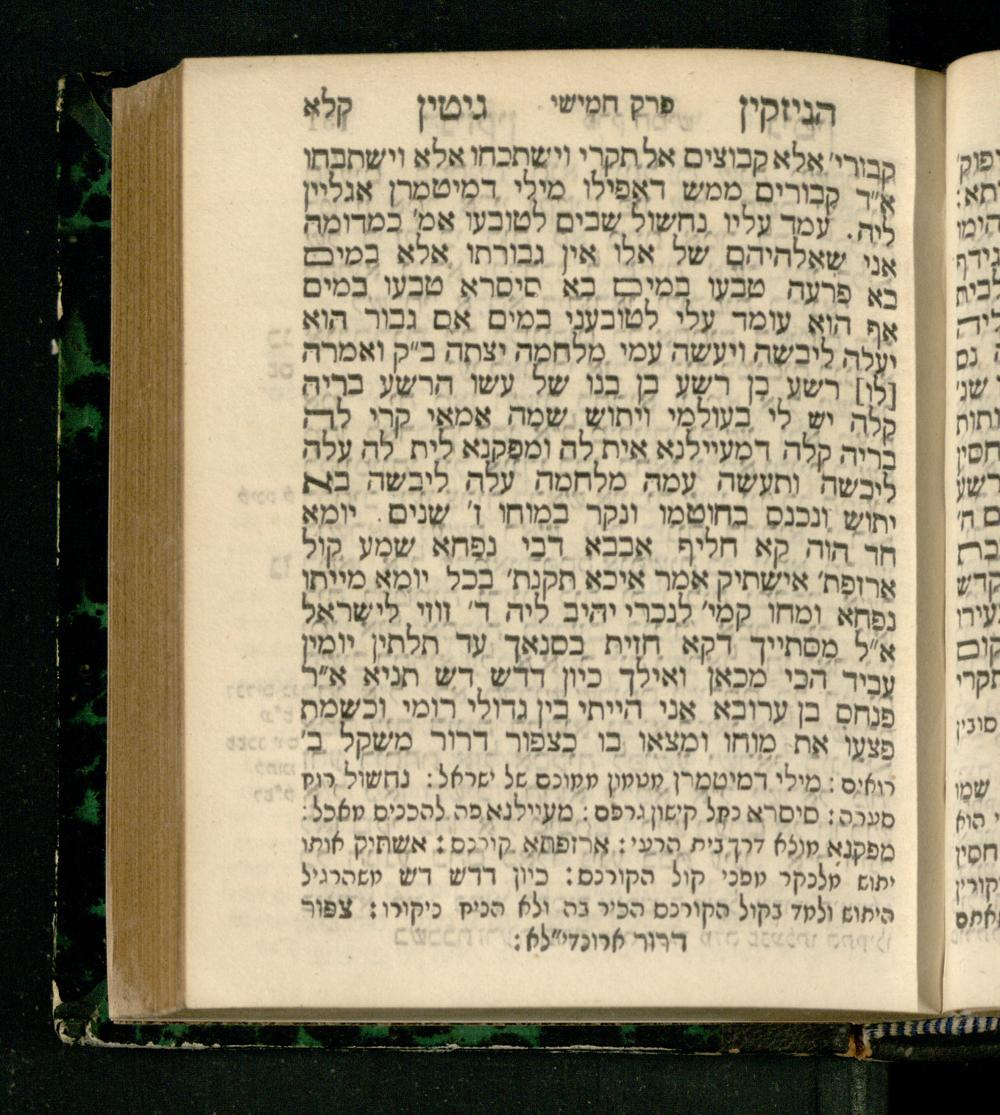 הניזקין פרק חמישי גיטין קלא
קבורי' אלא קבוצים אל תקרי וישתכחו אלא וישתבחו
א״ד קבורים ממש דאפילו מילי דמיטמרן אגליין
ליה. עמד עליו נחשול שבים לטובעו אמ' כמדומה
אני שאלהיהם של אלו אין גבורתו אלא במים
בא פרעה טבעו במים בא סיסרא טבעו במים
אף הוא עומד עלי לטובעני במים אם גבור הוא
יעלה ליבשה ויעשה עמי מלחמה יצתה ב״ק ואמרה
[לו] רשע בן רשע בן בנו של עשו הרשע בריה
קלה יש לי בעולמי ויתוש שמה אמאי קרי לה
בריה קלה דמעיילנא אית לה ומפקנא לית לה עלה
ליבשה ותעשה עמה מלחמה עלה ליבשה בא
יתוש ונכנס בחוטמו ונקר במוחו ז' שנים. יומא
חד הוה קא חליף אבבא דבי נפחא שמע קול
ארזפת' אישתיק אמר איכא תקנת' בכל יומא מייתו
נפחא ומחו קמי' לנכרי יהיב ליה ד' זוזי לישראל
א״ל מסתייך דקא חזית בסנאך עד תלתין יומין
עביד הכי מכאן ואילך כיון דדש דש תניא א״ר
פנחס בן ערובא אני הייתי בין גדולי רומי וכשמת
פצעו את מוחו ומצאו בו כצפור דרור משקל ב'
רואים: מילי דמיטמרן מטמון ממוכם של ישראל: נחשול רוח
סערה: סיסרא נחל קישון גרפם: מעיילנא פה להכניס מאכל:
מפקנא מוצא דרך בית הרעי: ארזפתא קורנס: אשתיק אותו
יתוש מלנקר מפני קול הקורנס: כיון דדש דש משהרגיל
היתוש ולמד בקול הקורנס הכיר בה ולא הניח ניקורו: צפור
דרור ארונדי״לא: